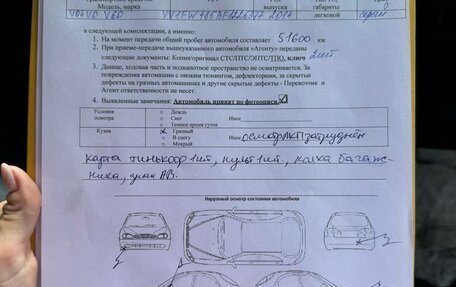 Модель, марка выпуска габариты
VOLVO V60 2019 легковой серый
в следующей комплектации, а именно:
1. На момент передачи общий пробег автомобиля составляет 51600 км
2. При приеме-передаче вышеуказанного автомобиля «Агенту» переданы
следующие документы: Копия/оригинал СТС/ПТС/ЭПТС/ПТЮ, ключ 2шт
3. Днище, ходовая часть и подкапотное пространство не осматривается. За
повреждения автомашин с низким тюнингом, дефлекторами, за скрытые
дефекты на грязных автомашинах и другие скрытые дефекты - Перевозчик и
Агент ответственности не несет.
4. Выявленные замечания: Автомобиль принят по фотоописи.
Условия осмотра
Дождь
Снег Иное
Темное время суток
Кузов
Грязный
В снегу Иное осмотр ЛКП затруднён
Мокрый
карта тинькофф 1шт, пульт 1шт,
Наружный осмотр состояния автомобиля